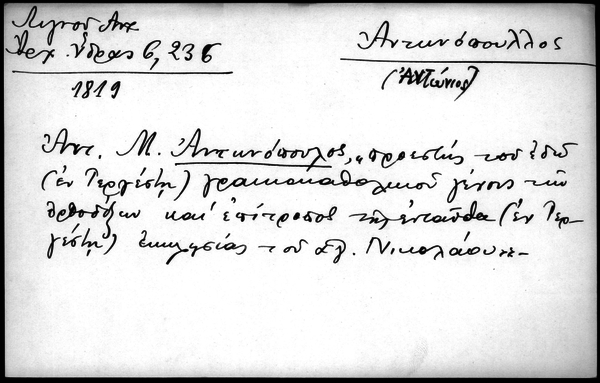 Λιγνοῦ Ἀντ.
Ἀρχ. Ὕδρας 6, 236
1819
Ἀντωνόπουλλος
(Ἀντώνιος)
Ἀντ. Μ. Ἀντωνόπουλος, „προεστὼς τοῦ ἐδῶ
(ἐν Τεργέστῃ) γραικοκαθολικοῦ γένους τῶν
ὀρθοδόξων καὶ ἐπίτροπος τῆς ἐνταῦθα (ἐν Τερ-
γέστῃ) ἐκκλησίας τοῦ ἁγ. Νικολάου"-